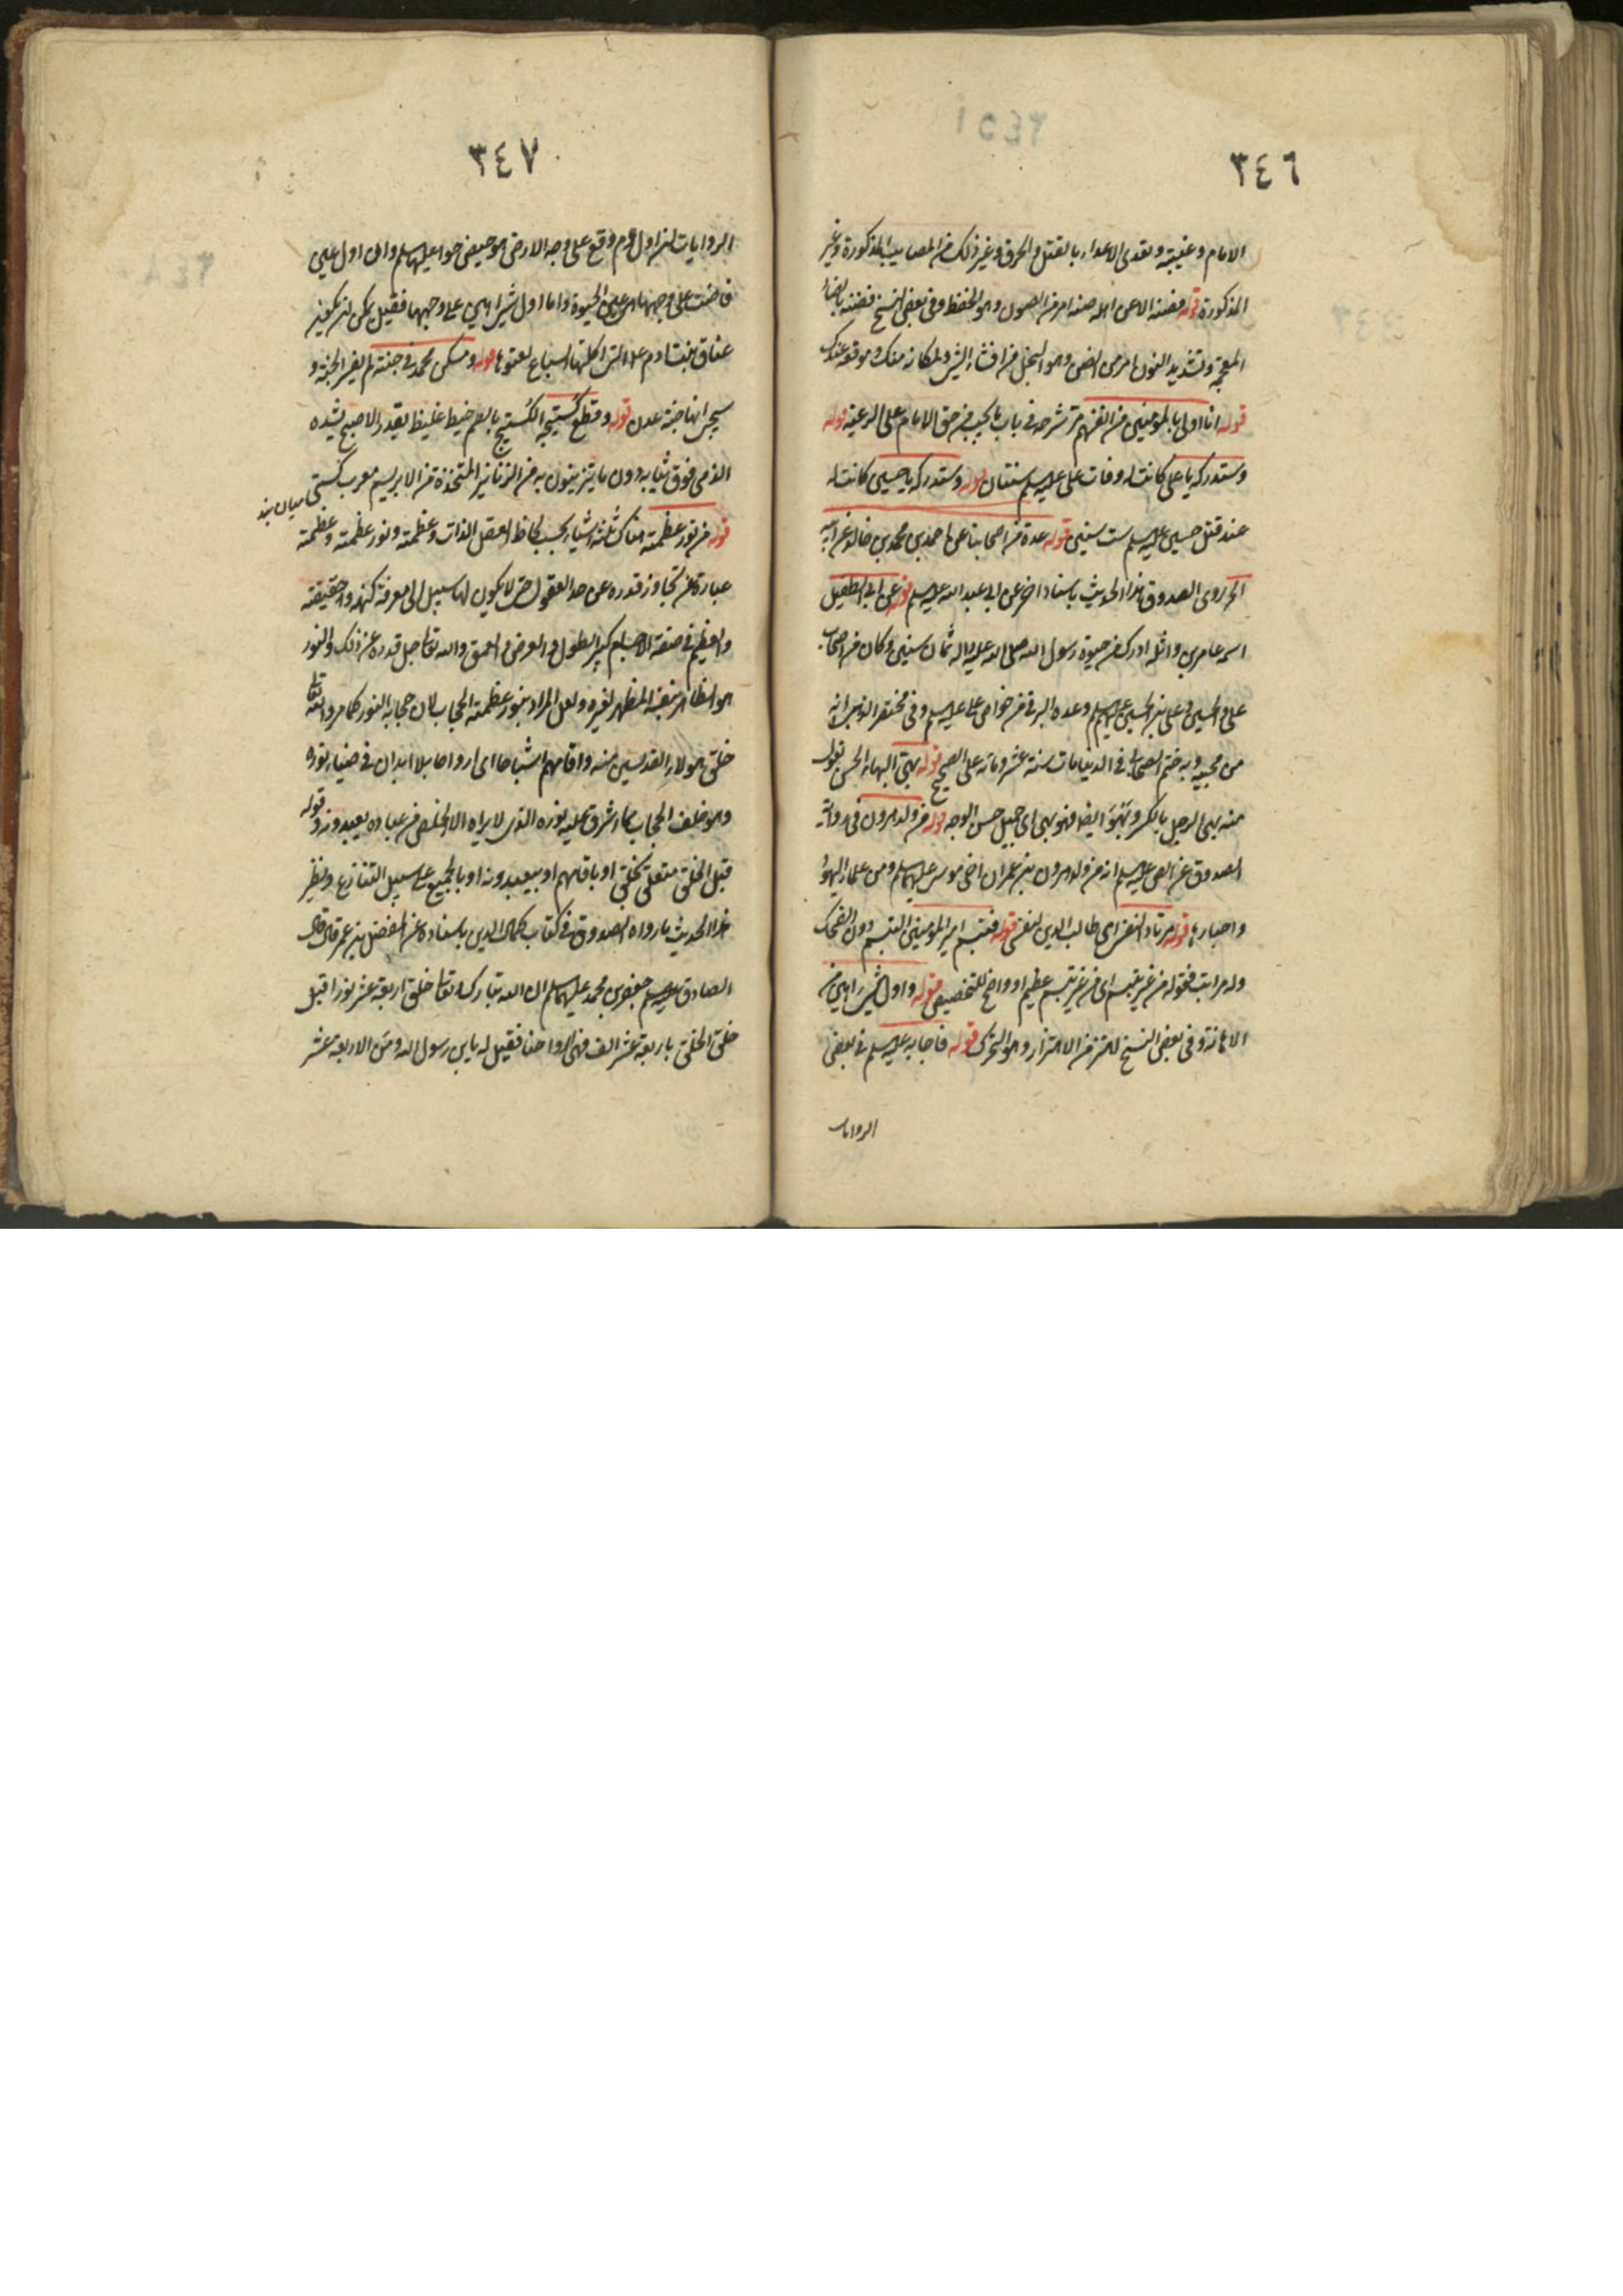 ٣٤٦
الامام وغيبته وتعدى الاعداء بالقتل والحرق وغير ذلك من المصايب المذكورة وغير
المذكورة قوله فصنه الا عن اهله صنه امر من الصون وهو الحفظ وفى بعض النسخ فضنه بالضاد
المعجمة وتشديد النون امر من الضن وهو البخل من افشاء الشئ لمكانه منك وموقعه عندك
قوله انا اولى بالمومنين من انفسهم مر شرحه فى باب ما يجب من حق الامام على الرعية قوله
وستدركه يا على كانت له وفات على عليه السلم سنتان قوله وستدركه يا حسين كانت له
عند قتل حسين عليه السلم ست سنين قوله عدة من اصحابنا عن احمد بن محمد بن خالد عن ابيه
الخ روى الصدوق هذا الحديث باسناد اخر عن ابى عبد الله عليه السلم قوله عن ابى الطفيل
اسمه عامر بن واثله ادرك من حيوة رسول الله صلى الله عليه واله ثمان سنين وكان من اصحاب
على والحسين وعلى بن الحسين عليهم السلم وعده البرقى من خواص على عليه السلم وفى مختصر الذهبى انه
من محبيه وبه ختم الصحابة فى الدنيا مات سنة عشر ومائة على الصحيح قوله بهى البهاء الحسن تقول
منه بهى الرجل بالكسر وبَهُوَ ايضا فهو بهى اى جميل حسن الوجه قوله من ولد هرون فى رواية
الصدوق عن الصـ عليه السلم انه من ولد هرون بن عمران اخى موسى عليهما السلم ومن علماء اليهود
واحبارها قوله مرتاد لنفسى اى طالب الدين لنفسى قوله فتبسم امير المومنين التبسم دون الضحك
وله مراتب فقوله من غير تبسم اى من غير تبسم عظيم او واضح للتخصيص قوله واول شئ اهتز من
الاهانة وفى بعض النسخ اهتز من الاهتزاز وهو التحرك قوله فاجابه عليه السلم فى بعض
الروايات
٣٤٧
الروايات ان اول دم وقع على وجه الارض هو حيض حوا عليها السلم وان اول عين
فاضت على وجهها هى عين الحيوة واما اول شئ اهتز على وجهها فقيل يمكن ان يكون
عناق بنت ادم على التى اكلتها السباع لعتوها قوله ومسكن محمد فى جنته لم يفسر الجنة و
سيجئ انها جنة عدن قوله وقطع كُستيجه الكُستيج بالضم خيط غليظ بقدر الاصبع يشده
الذمى فوق ثيابه دون ما يتزينون به من الزنانير المتخذة من الابريسم معرب كستى ميان بند
قوله من نور عظمته هناك ثلثة اشياء بحسب لحاظ العقل الذات وعظمته ونور عظمته وعظمته
عبارة عن تجاوز قدره عن حد العقول حتى لا يكون لها سبيل الى معرفة كنهه وحقيقته
والعظيم فى صفة الاجسام كبير الطول والعرض والعمق والله تعالى جل قدره عن ذلك والنور
هو الظاهر بنفسه المظهر لغيره ولعل المراد بنور عظمته الحجاب لان حجابه النور كما مر والله تعالى
خلق هولاء القدسين منه واقامهم اشباحا اى ارواحا بلا ابدان فى ضياء نوره
وهو خلف الحجاب مما اشرق عليه نوره الذى لا يراه الا الخلص من عباده يعبدونه وقوله
قبل الخلق متعلق بخلق او باقامهم او بيعبدونه او بالجميع على سبيل التنازع ونظير
هذا الحديث ما رواه الصدوق فى كتاب كمال الدين باسناده عن المفضل بن عمر قال قال
الصادق عليه السلم جعفر بن محمد عليهما السلم ان الله تبارك وتعالى خلق اربعة عشر نورا قبل
خلق الخلق باربعة عشر الف فهى ارواحنا فقيل له يابن رسول الله ومن الاربعة عشر